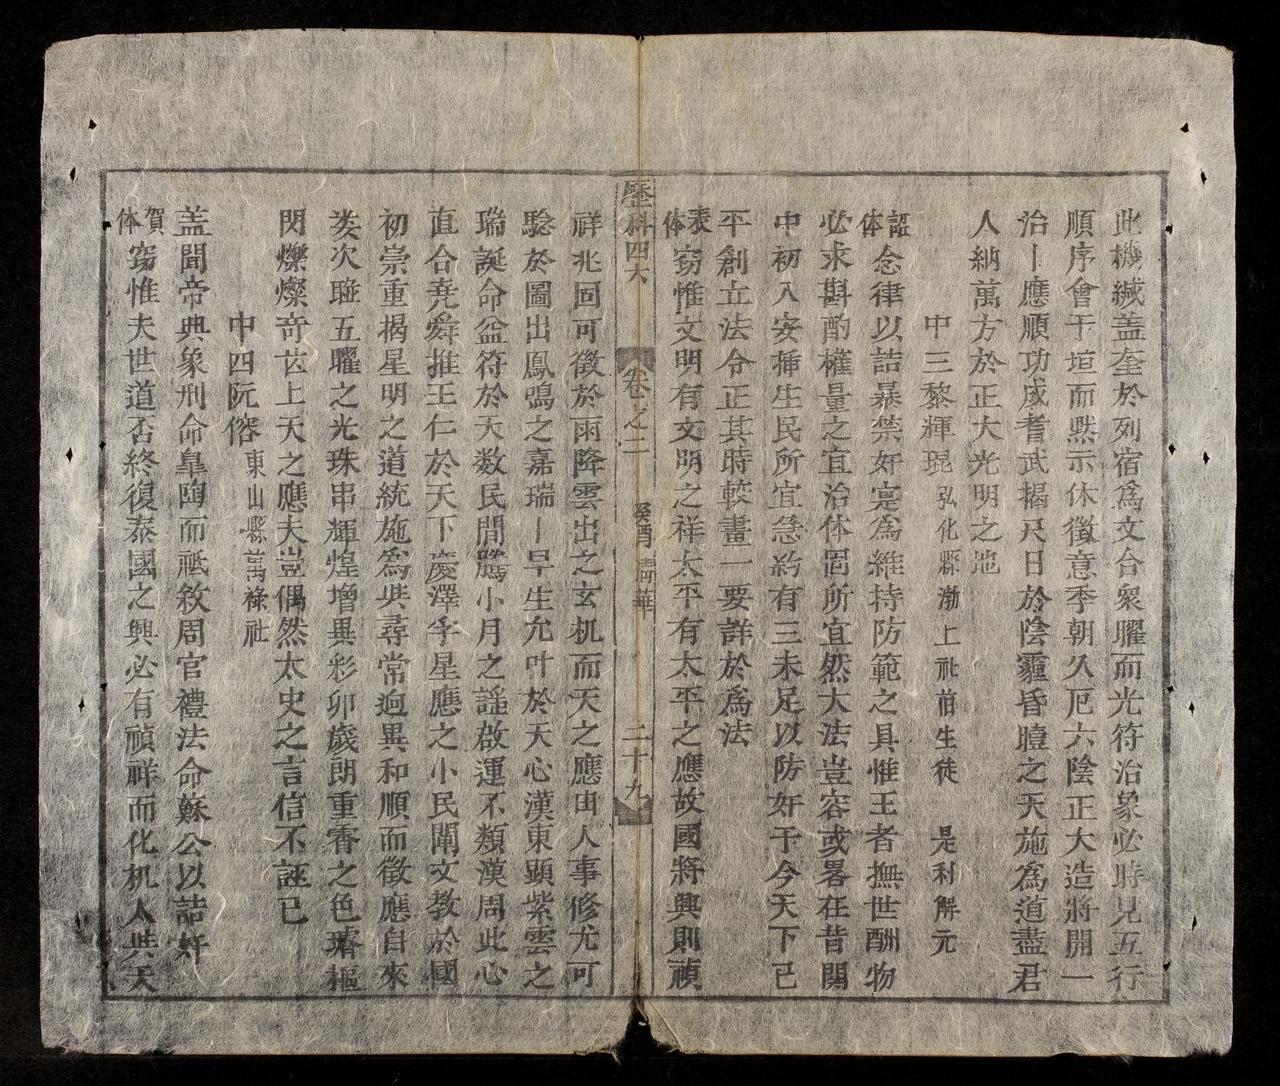 此機緘盖奎於列宿爲文合衆曜而光符治象必時見五行
順序會于垣而㸃示休徵意季朝久厄六陰正大造將開一
治｜應順功成耆武揭尺日於陰霾昏曀之天施爲道盡君
人納萬方於正大光明之地
中三黎輝琨弘化縣渤上社前生徒 是利解元
詔体念律以詰暴禁奸寔爲維持防範之具惟王者撫世酬物
必求斟酌權量之宜治体固所宜然大法豈容或畧在昔関
中初入安揷生民所宜急約有三未足以防奸于今天下已
平創立法令正其時較畫一要詳於爲法
表体窃惟文明有文明之祥太平有太平之應故國將興則禎
歷科四六 卷之二 癸酉 清華 二十九
祥兆固可徵於雨降雲出之玄机而天之應由人事修尤可
騐於圖出鳳鳴之嘉瑞｜早生允叶於天心漢東顯紫雲之
瑞誕命益符於天数民間騰小月之謠啟運不類漢周此心
直合堯舜推王仁於天下慶澤孚星應之小民闡文教於國
初崇重揭星明之道統施爲共尋常逈異和順而徵應自來
奚次碰五曜之光珠串輝煌增異彩卯歲朗重睿之色璿樞
閃爍燦奇芒上天之應夫豈偶然太史之言信不誣已
中四阮傛東山縣萬祿社
盖聞帝典象刑命臯陶而祗敘周官禮法命蘇公以詰奸
賀体窃惟夫世道否終復泰國之興必有禎祥而化机人共天